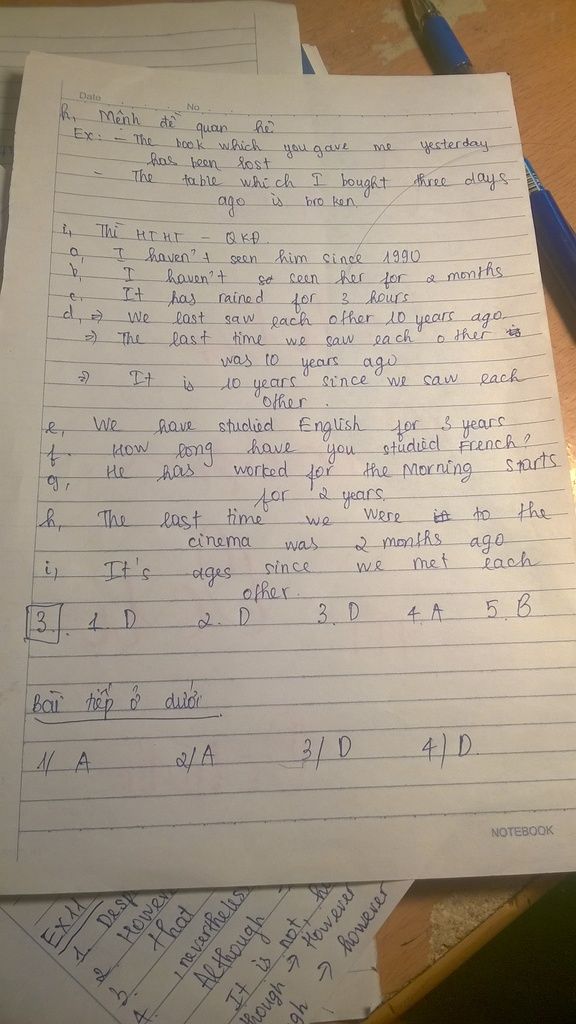 Date No
h, Mệnh đề quan hệ
Ex: - The book which you gave me yesterday
has been lost
- The table which I bought three days
ago is broken.
i, Thì HTHT - QKĐ.
a, I haven't seen him since 1990
b, I haven't seen her for 2 months
c, It has rained for 3 hours
d, => We last saw each other 10 years ago
=> The last time we saw each other
was 10 years ago
=> It is 10 years since we saw each
other.
e, We have studied English for 3 years
f. How long have you studied French?
g, He has worked for the Morning starts
for 2 years.
h, The last time we were to the
cinema was 2 months ago
i, It's ages since we met each
other.
3. 1. D 2. D 3. D 4. A 5. B
Bài tiếp ở dưới
1/ A 2/ A 3/ D 4/ D.
NOTEBOOK
Ex11
1. Desp
2. However
3. That
4. nevertheles
Although
It is not, he
though => However
gh => however